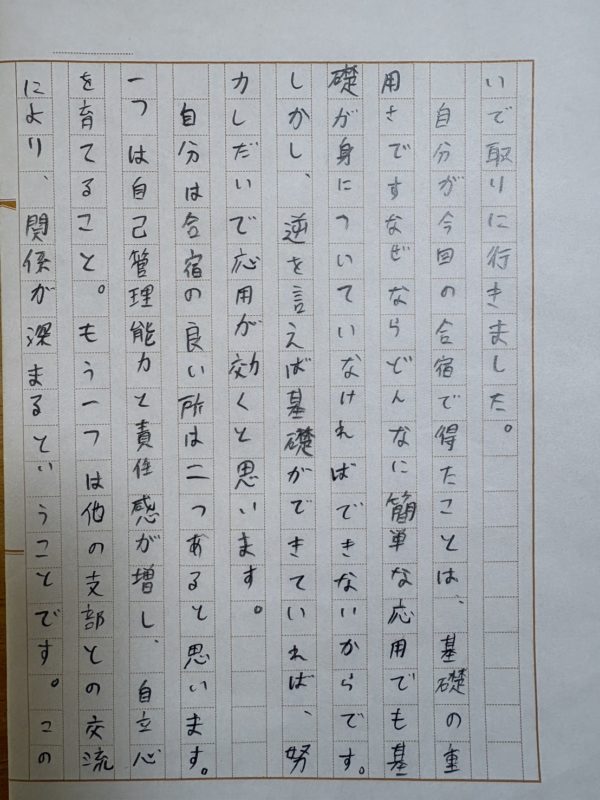 いで取りに行きました。
自分が今回の合宿で得たことは、基礎の重
用さですなぜならどんなに簡単な応用でも基
礎が身についていなければできないからです。
しかし、逆を言えば基礎ができていれば、努
力しだいで応用が効くと思います。
自分は合宿の良い所は二つあると思います。
一つは自己管理能力と責任感が増し、自立心
を育てること。もう一つは他の支部との交流
により、関係が深まるということです。この